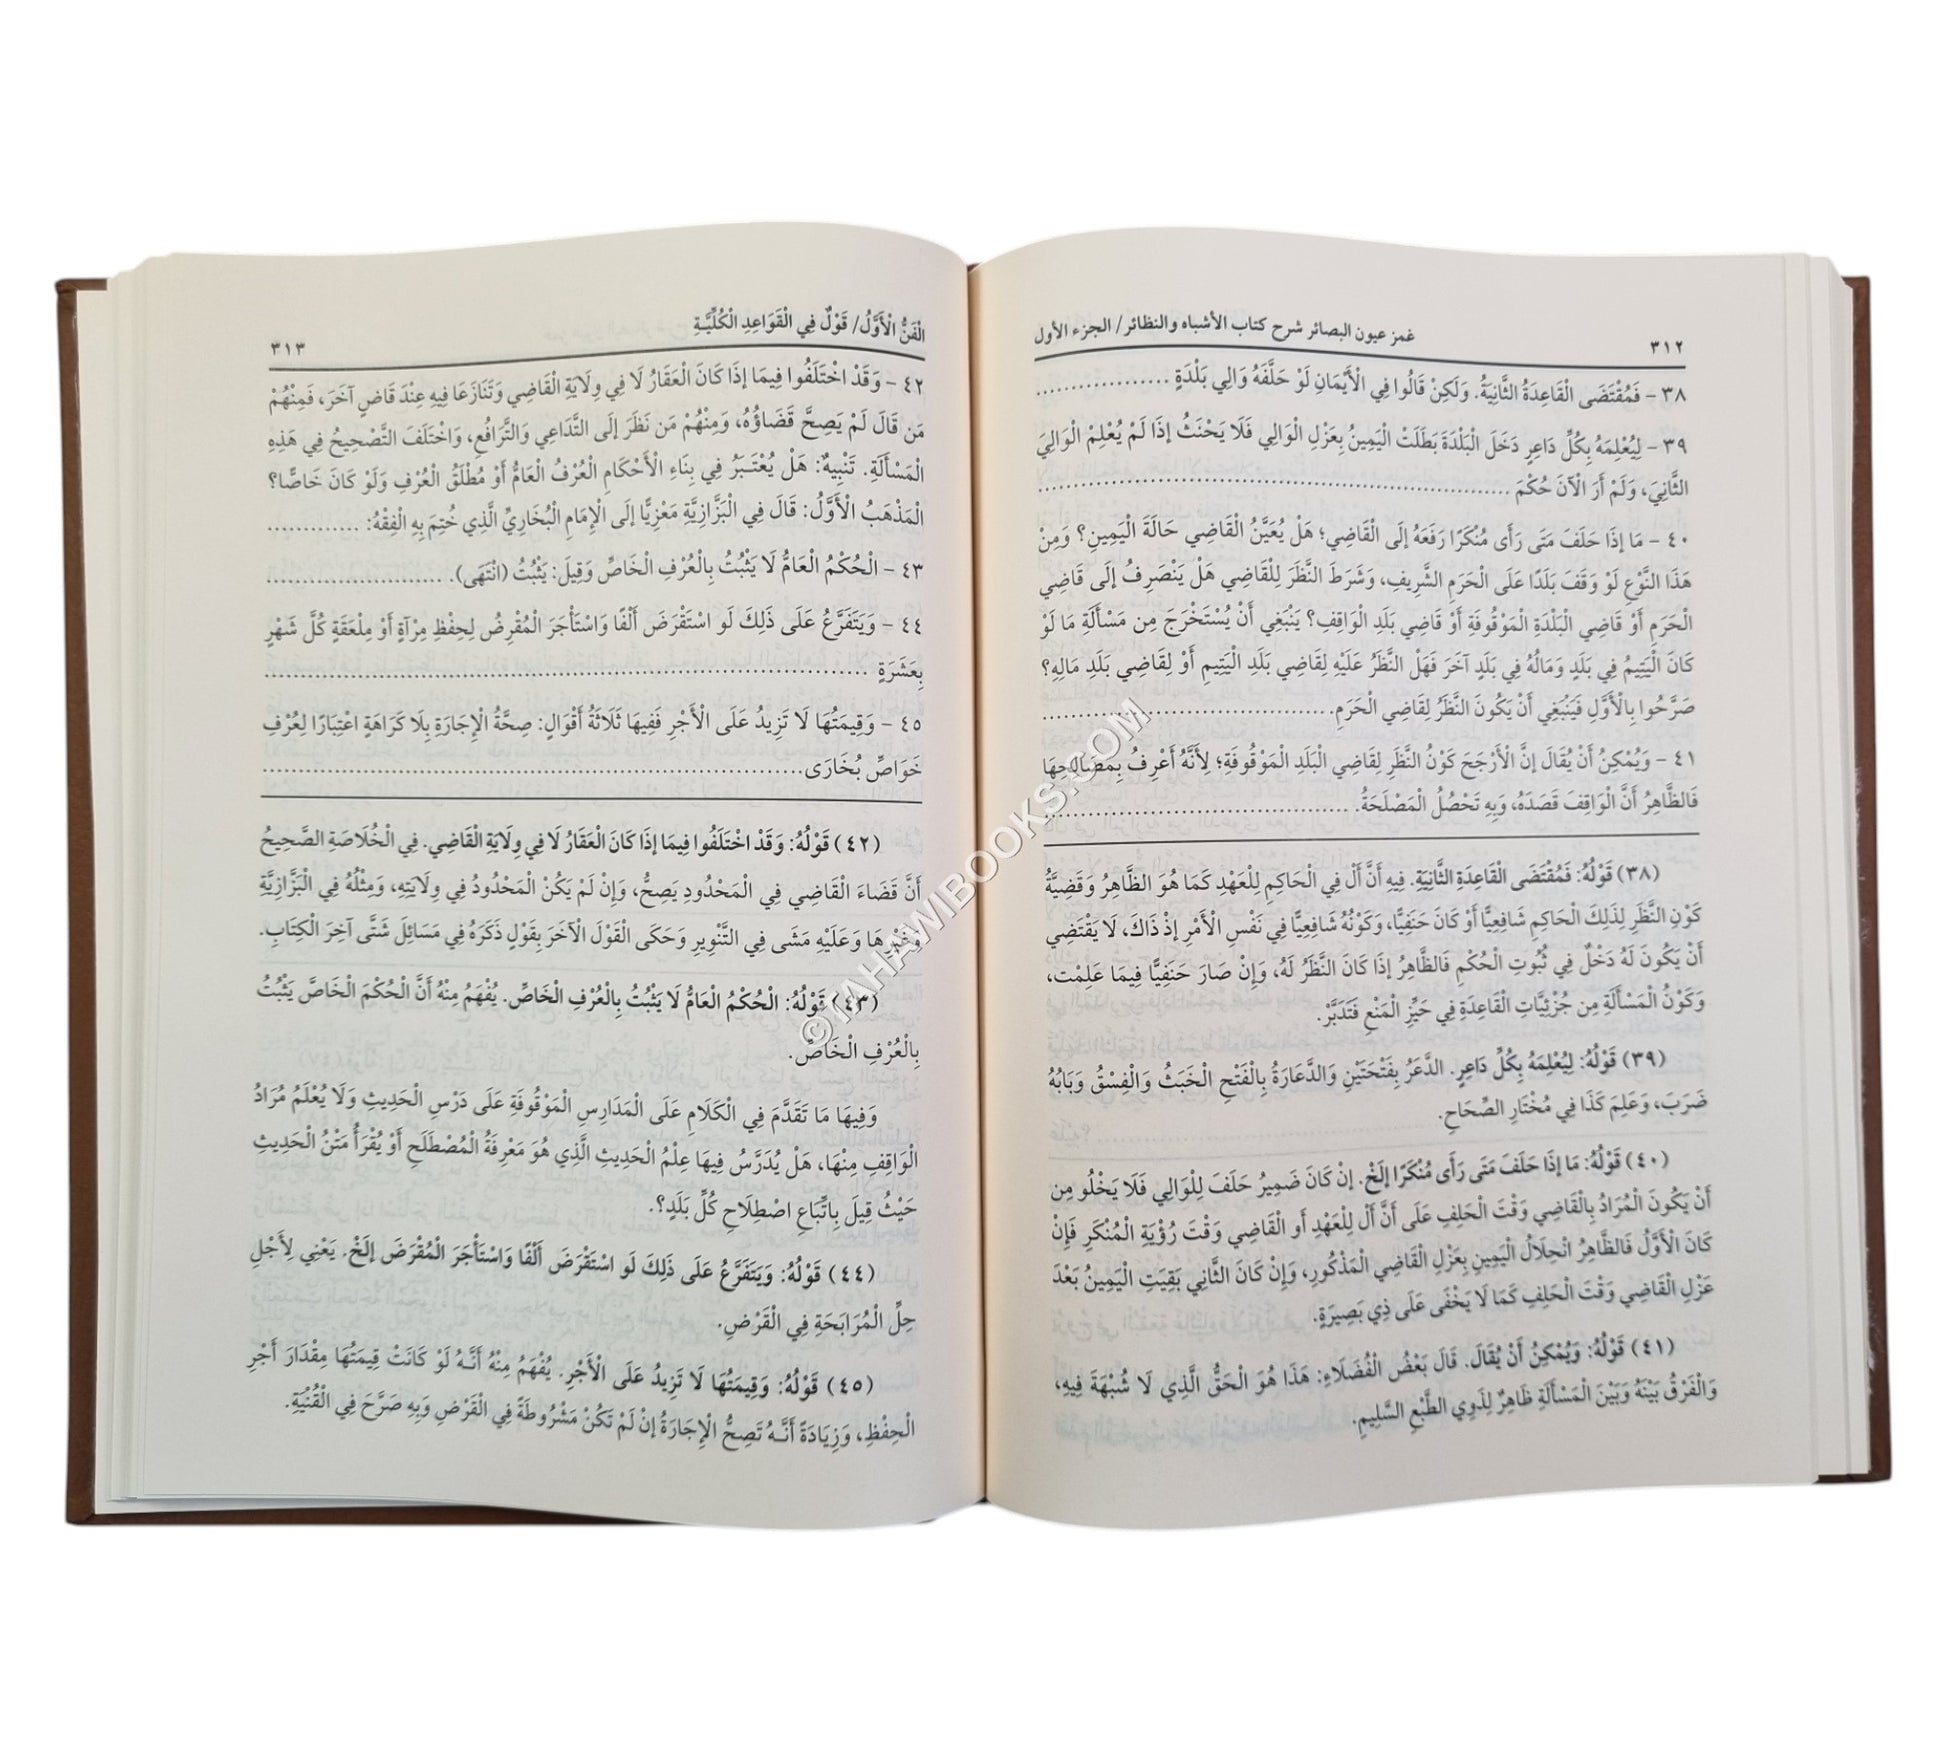 ٣١٢
غمز عيون البصائر شرح كتاب الأشباه والنظائر/ الجزء الأول
٣٨ - فَمُقْتَضَى الْقَاعِدَةُ الثَّانِيَةُ. وَلَكِنْ قَالُوا فِي الْأَيْمَانِ لَوْ حَلَّفَهُ وَالِي بَلْدَةٍ ...................
٣٩ - لِيُعْلِمَهُ بِكُلِّ دَاعِرٍ دَخَلَ الْبَلْدَةَ بَطَلَتْ الْيَمِينُ بِعَزْلِ الْوَالِي فَلَا يَحْنَثُ إذَا لَمْ يُعْلِمْ الْوَالِيَ
الثَّانِيَ، وَلَمْ أَرَ الْآنَ حُكْمَ ...................
٤٠ - مَا إذَا حَلَفَ مَتَى رَأَى مُنْكَرًا رَفَعَهُ إلَى الْقَاضِي؛ هَلْ يُعَيَّنُ الْقَاضِي حَالَةَ الْيَمِينِ؟ وَمِنْ
هَذَا النَّوْعِ لَوْ وَقَفَ بَلَدًا عَلَى الْحَرَمِ الشَّرِيفِ، وَشَرَطَ النَّظَرَ لِلْقَاضِي هَلْ يَنْصَرِفُ إلَى قَاضِي
الْحَرَمِ أَوْ قَاضِي الْبَلْدَةِ الْمَوْقُوفَةِ أَوْ قَاضِي بَلَدِ الْوَاقِفِ؟ يَنْبَغِي أَنْ يُسْتَخْرَجَ مِن مَسْأَلَةِ مَا لَوْ
كَانَ الْيَتِيمُ فِي بَلَدٍ وَمَالُهُ فِي بَلَدٍ آخَرَ فَهَلْ النَّظَرُ عَلَيْهِ لِقَاضِي بَلَدِ الْيَتِيمِ أَوْ لِقَاضِي بَلَدِ مَالِهِ؟
صَرَّحُوا بِالْأَوَّلِ فَيَنْبَغِي أَنْ يَكُونَ النَّظَرُ لِقَاضِي الْحَرَمِ. ...................
٤١ - وَيُمْكِنُ أَنْ يُقَالَ إنَّ الْأَرْجَحَ كَوْنُ النَّظَرِ لِقَاضِي الْبَلَدِ الْمَوْقُوفَةِ؛ لِأَنَّهُ أَعْرِفُ بِمَصَالِحِهَا
فَالظَّاهِرُ أَنَّ الْوَاقِفَ قَصَدَهُ، وَبِهِ تَحْصُلُ الْمَصْلَحَةُ. ...................
(٣٨) قَوْلُهُ: فَمُقْتَضَى الْقَاعِدَةِ الثَّانِيَةِ. فِيهِ أَنَّ أَلْ فِي الْحَاكِمِ لِلْعَهْدِ كَمَا هُوَ الظَّاهِرُ وَقَضِيَّةُ
كَوْنِ النَّظَرِ لِذَلِكَ الْحَاكِمِ شَافِعِيًّا أَوْ كَانَ حَنَفِيًّا، وَكَوْنُهُ شَافِعِيًّا فِي نَفْسِ الْأَمْرِ إذْ ذَاكَ، لَا يَقْتَضِي
أَنْ يَكُونَ لَهُ دَخْلٌ فِي ثُبُوتِ الْحُكْمِ فَالظَّاهِرُ إذَا كَانَ النَّظَرُ لَهُ، وَإِنْ صَارَ حَنَفِيًّا فِيمَا عَلِمْت،
وَكَوْنُ الْمَسْأَلَةِ مِن جُزْئِيَّاتِ الْقَاعِدَةِ فِي حَيِّزِ الْمَنْعِ فَتَدَبَّرْ.
(٣٩) قَوْلُهُ: لِيُعْلِمَهُ بِكُلِّ دَاعِرٍ. الدَّعَرُ بِفَتْحَتَيْنِ وَالدَّعَارَةُ بِالْفَتْحِ الْخَبَثُ وَالْفِسْقُ وَبَابُهُ
ضَرَبَ، وَعَلِمَ كَذَا فِي مُخْتَارِ الصِّحَاحِ.
(٤٠) قَوْلُهُ: مَا إذَا حَلَفَ مَتَى رَأَى مُنْكَرًا إلَخْ. إنْ كَانَ ضَمِيرُ حَلَفَ لِلْوَالِي فَلَا يَخْلُو مِن
أَنْ يَكُونَ الْمُرَادُ بِالْقَاضِي وَقْتَ الْحَلِفِ عَلَى أَنَّ أَلْ لِلْعَهْدِ أَو الْقَاضِي وَقْتَ رُؤْيَةِ الْمُنْكَرِ فَإِنْ
كَانَ الْأَوَّلُ فَالظَّاهِرُ انْحِلَالُ الْيَمِينِ بِعَزْلِ الْقَاضِي الْمَذْكُورِ، وَإِنْ كَانَ الثَّانِي بَقِيَتِ الْيَمِينُ بَعْدَ
عَزْلِ الْقَاضِي وَقْتَ الْحَلِفِ كَمَا لَا يَخْفَى عَلَى ذِي بَصِيرَةٍ.
(٤١) قَوْلُهُ: وَيُمْكِنُ أَنْ يُقَالَ. قَالَ بَعْضُ الْفُضَلَاءِ: هَذَا هُوَ الْحَقُّ الَّذِي لَا شُبْهَةَ فِيهِ،
وَالْفَرْقُ بَيْنَهُ وَبَيْنَ الْمَسْأَلَةِ ظَاهِرٌ لِذَوِي الطَّبْعِ السَّلِيمِ.
الْفَنُّ الْأَوَّلُ/ قَوْلٌ فِي الْقَوَاعِدِ الْكُلِّيَّةِ
٣١٣
٤٢ - وَقَدْ اخْتَلَفُوا فِيمَا إذَا كَانَ الْعَقَارُ لَا فِي وِلَايَةِ الْقَاضِي وَتَنَازَعَا فِيهِ عِنْدَ قَاضٍ آخَرَ، فَمِنْهُمْ
مَن قَالَ لَمْ يَصِحَّ قَضَاؤُهُ، وَمِنْهُمْ مَن نَظَرَ إلَى التَّدَاعِي وَالتَّرَافُعِ، وَاخْتَلَفَ التَّصْحِيحُ فِي هَذِهِ
الْمَسْأَلَةِ. تَنْبِيهٌ: هَلْ يُعْتَبَرُ فِي بِنَاءِ الْأَحْكَامِ الْعُرْفُ الْعَامُّ أَوْ مُطْلَقُ الْعُرْفِ وَلَوْ كَانَ خَاصًّا؟
الْمَذْهَبُ الْأَوَّلُ: قَالَ فِي الْبَزَّازِيَّةِ مَعْزِيًّا إلَى الْإِمَامِ الْبُخَارِيِّ الَّذِي خُتِمَ بِهِ الْفِقْهُ: .............
٤٣ - الْحُكْمُ الْعَامُّ لَا يَثْبُتُ بِالْعُرْفِ الْخَاصِّ وَقِيلَ: يَثْبُتُ (انْتَهَى). ...................
٤٤ - وَيَتَفَرَّعُ عَلَى ذَلِكَ لَو اسْتَقْرَضَ أَلْفًا وَاسْتَأْجَرَ الْمُقْرِضُ لِحِفْظِ مِرْآةٍ أَوْ مِلْعَقَةٍ كُلَّ شَهْرٍ
بِعَشَرَةٍ ...................
٤٥ - وَقِيمَتُهَا لَا تَزِيدُ عَلَى الْأَجْرِ فَفِيهَا ثَلَاثَةُ أَقْوَالٍ: صِحَّةُ الْإِجَارَةِ بِلَا كَرَاهَةٍ اعْتِبَارًا لِعُرْفِ
خَوَاصِّ بُخَارَى...................
(٤٢) قَوْلُهُ: وَقَدْ اخْتَلَفُوا فِيمَا إذَا كَانَ الْعَقَارُ لَا فِي وِلَايَةِ الْقَاضِي. فِي الْخُلَاصَةِ الصَّحِيحُ
أَنَّ قَضَاءَ الْقَاضِي فِي الْمَحْدُودِ يَصِحُّ، وَإِنْ لَمْ يَكُنْ الْمَحْدُودُ فِي وِلَايَتِهِ، وَمِثْلُهُ فِي الْبَزَّازِيَّةِ
وَغَيْرِهَا وَعَلَيْهِ مَشَى فِي التَّنْوِيرِ وَحَكَى الْقَوْلَ الْآخَرَ بِقَوْلٍ ذَكَرَهُ فِي مَسَائِلَ شَتَّى آخِرَ الْكِتَابِ.
(٤٣) قَوْلُهُ: الْحُكْمُ الْعَامُّ لَا يَثْبُتُ بِالْعُرْفِ الْخَاصِّ. يُفْهَمُ مِنْهُ أَنَّ الْحُكْمَ الْخَاصَّ يَثْبُتُ
بِالْعُرْفِ الْخَاصِّ.
وَفِيهَا مَا تَقَدَّمَ فِي الْكَلَامِ عَلَى الْمَدَارِسِ الْمَوْقُوفَةِ عَلَى دَرْسِ الْحَدِيثِ وَلَا يُعْلَمُ مُرَادُ
الْوَاقِفِ مِنْهَا، هَلْ يُدَرَّسُ فِيهَا عِلْمُ الْحَدِيثِ الَّذِي هُوَ مَعْرِفَةُ الْمُصْطَلَحِ أَوْ يُقْرَأُ مَتْنُ الْحَدِيثِ
حَيْثُ قِيلَ بِاتِّبَاعِ اصْطِلَاحِ كُلِّ بَلَدٍ؟.
(٤٤) قَوْلُهُ: وَيَتَفَرَّعُ عَلَى ذَلِكَ لَو اسْتَقْرَضَ أَلْفًا وَاسْتَأْجَرَ الْمُقْرَضَ إلَخْ. يَعْنِي لِأَجْلِ
حِلِّ الْمُرَابَحَةِ فِي الْقَرْضِ.
(٤٥) قَوْلُهُ: وَقِيمَتُهَا لَا تَزِيدُ عَلَى الْأَجْرِ. يُفْهَمُ مِنْهُ أَنَّهُ لَوْ كَانَتْ قِيمَتُهَا مِقْدَارَ أَجْرِ
الْحِفْظِ، وَزِيَادَةً أَنَّهُ تَصِحُّ الْإِجَارَةُ إنْ لَمْ تَكُنْ مَشْرُوطَةً فِي الْقَرْضِ وَبِهِ صَرَّحَ فِي الْقُنْيَةِ.
©TAHAWIBOOKS.COM